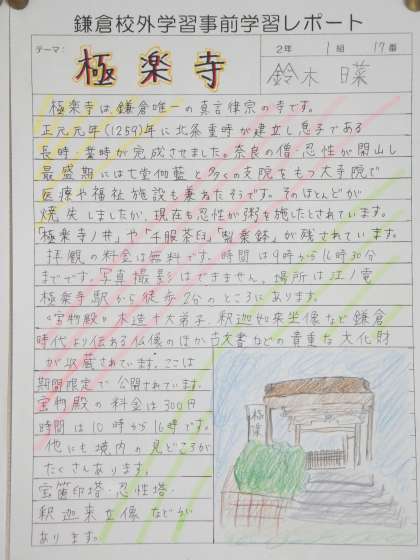 鎌倉校外学習事前学習レポート
テーマ:
極楽寺
2年 1組 17番
鈴木 日菜
極楽寺は鎌倉唯一の真言律宗の寺です。
正元元年(1259)年に北条重時が建立し息子である
長時・業時が完成させました。奈良の僧・忍性が開山し
最盛期には七堂伽藍と多くの支院をもつ大寺院で
医療や福祉施設も兼ねたそうです。そのほとんどが
焼失しましたが、現在も忍性が粥を施したとされています。
「極楽寺ノ井」や「千服茶臼」「製薬鉢」が残されています。
拝観の料金は無料です。時間は9時から16時30分
までです。写真撮影はできません。場所は江ノ電
極楽寺駅から徒歩2分のところにあります。
〈宝物殿〉木造十大弟子 釈迦如来坐像など鎌倉
時代より伝わる仏像のほか古文書などの貴重な文化財
が収蔵されています。ここは
期間限定で公開されています。
宝物殿の料金は300円
時間は10時から16時です。
他にも境内の見どころが
たくさんあります。
宝篋印塔・忍性塔・
釈迦来立像などが
あります。
極楽